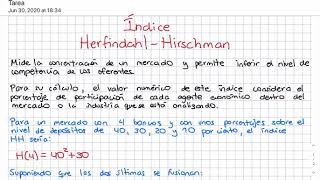 Tarea
Jun 30, 2020 at 18:34
Índice
Herfindahl-Hirschman
Mide la concentración de un mercado y permite inferir el nivel de
competencia de los oferentes.
Para su cálculo, el valor numérico de este índice considera el
porcentaje de participación de cada agente económico dentro del
mercado o la industria que se está analizando.
Para un mercado con 4 bancos y con unos porcentajes sobre el
nivel de depósitos de 40, 30, 20 y 10 por ciento, el índice
HH sería:
H(4) = 40²+30
Suponiendo que los dos últimas se fusionan: